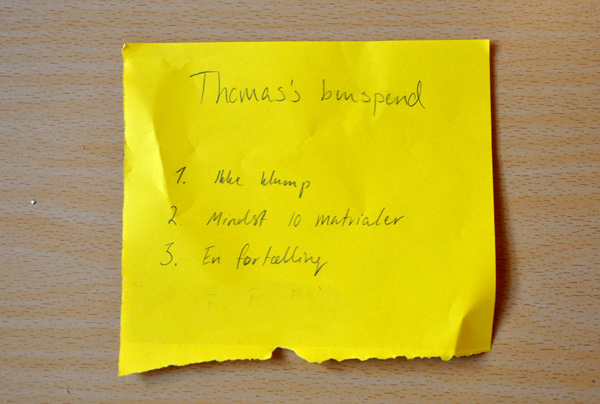 Thomas's benspend
1. Ikke klump
2. Mindst 10 matrialer
3. En fortælling